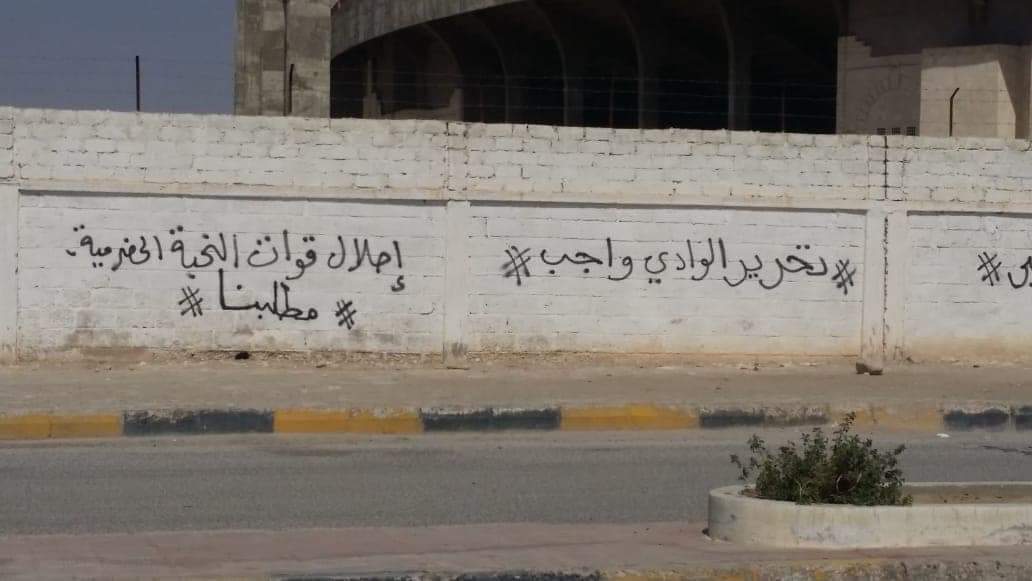 #تحرير الوادي واجب#
إحلال قوات النخبة الحضرمية
#مطلبنا#